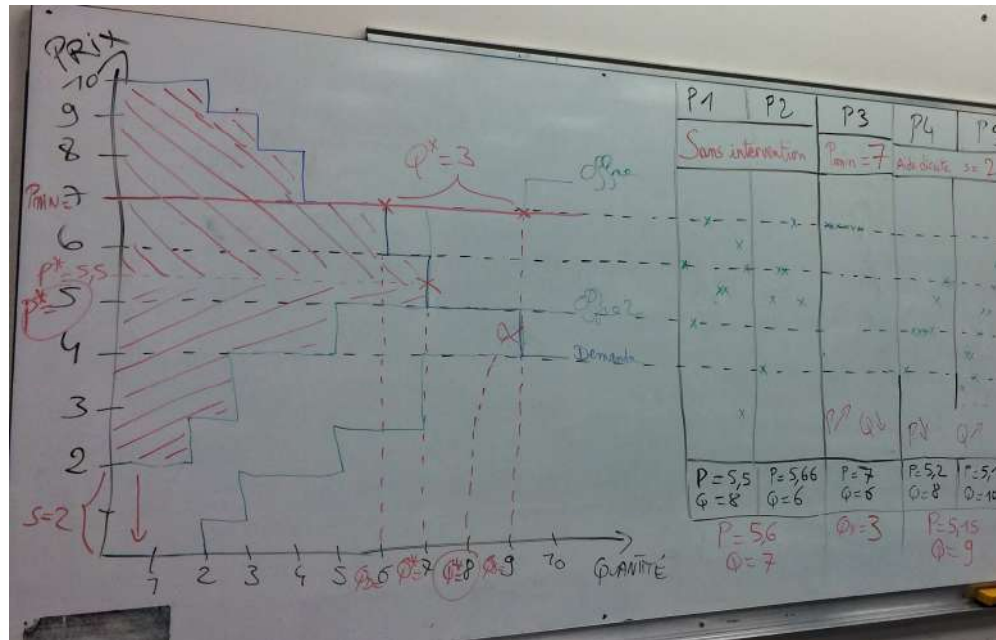 PRIX
10
9
8
Pmin=7
6
P*=5,5
P*=5
4
3
2
S=2
1 2 3 4 5 6 7 8 9 10 QUANTITÉ
Q*=3
Offre
Offre2
Demande
P1 P2 P3 P4 P5
Sans intervention Pmin=7 Aide directe s=2
P↗ Q↘ P↘ Q↗
P=5,5 P=5,66 P=7 P=5,2 P=5,1
Q=8 Q=6 Q=6 Q=8 Q=10
P=5,6 P=5,15
Q=7 Q=9